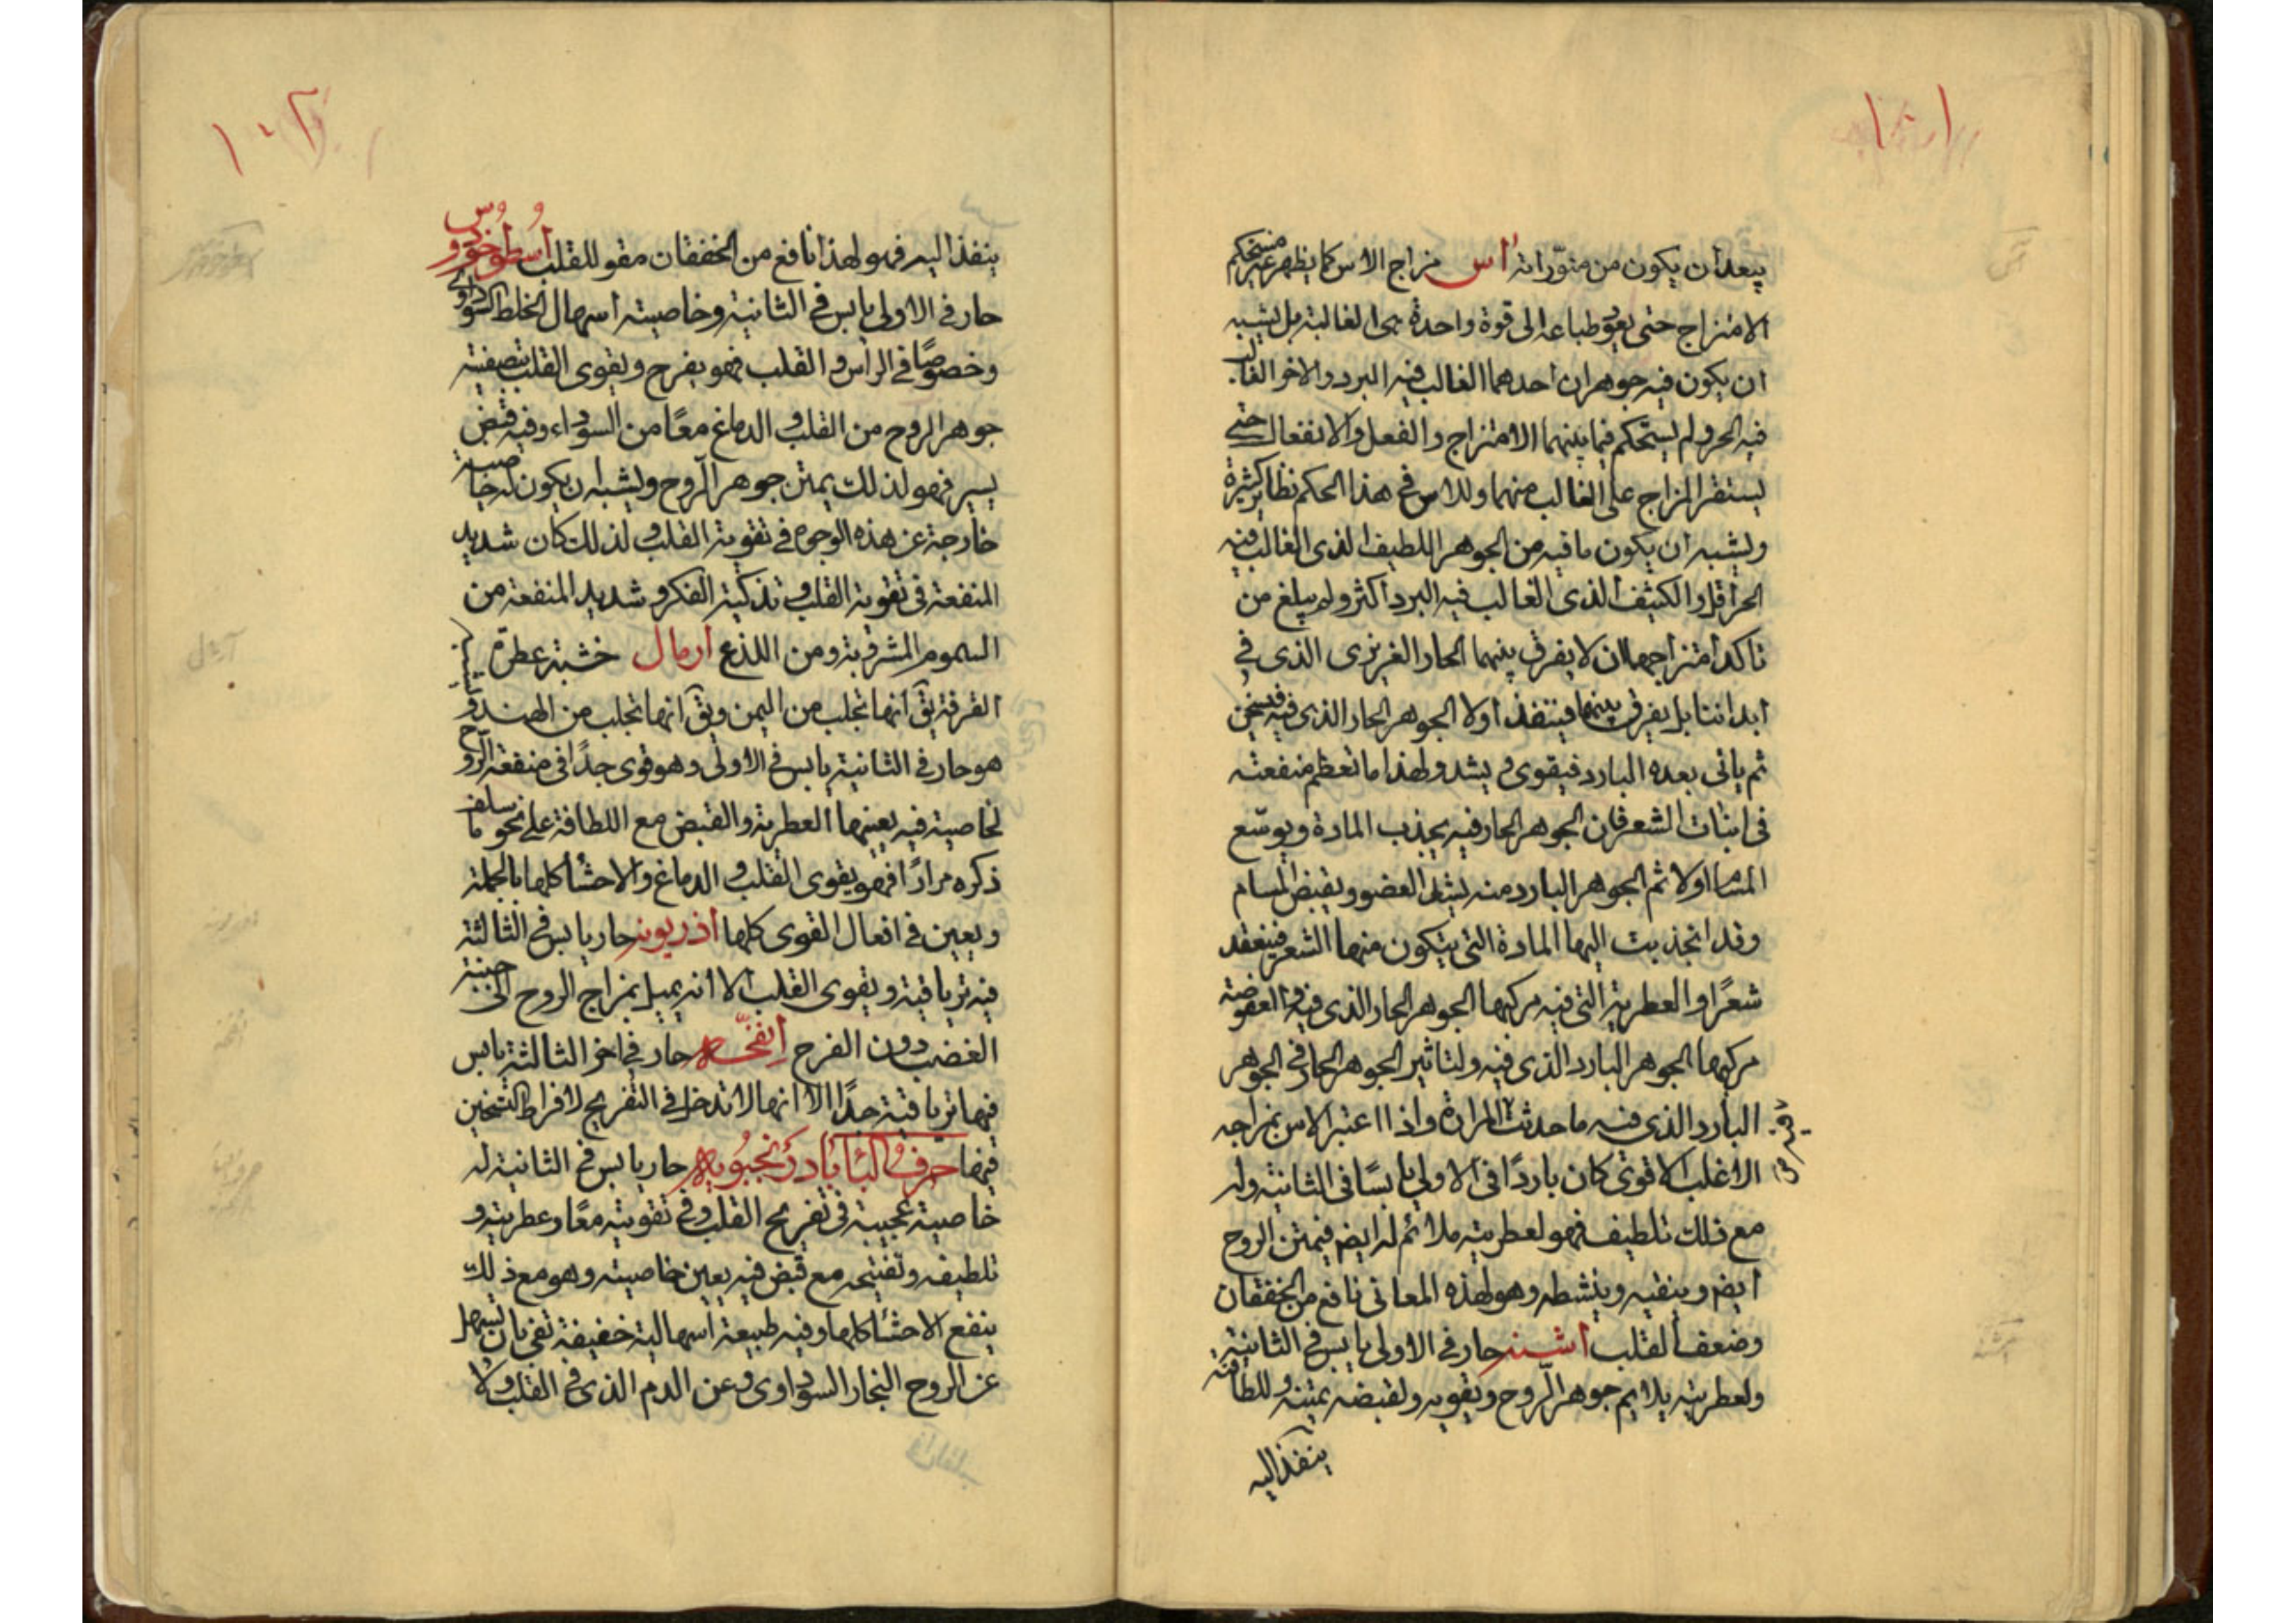 ١٠١
يبعد أن يكون من منوّراته آس مزاج الاس كما يظهر غير مستحكم
الامتزاج حتى يعود طباعه الى قوة واحدة هى الغالبة بل يشبه
ان يكون فيه جوهران احدهما الغالب فيه البرد والاخر الغالب
فيه الحر ولم يستحكم فيما بينهما الامتزاج والفعل والانفعال حتى
يستقر المزاج على الغالب منهما وللاس فى هذا الحكم نظاير كثيرة
ويشبه ان يكون ما فيه من الجوهر اللطيف الذى الغالب فيه
الحر اقل والكثيف الذى الغالب فيه البرد اكثر ولم يبلغ من
تاكد امتزاجهما ان لا يفرق بينهما الحار الغريزى الذى فى
ابداننا بل يفرق بينهما فينفذ اولا الجوهر الحار الذى فيه فيسخن
ثم ياتى بعده البارد فيقوى و يشد ولهذا ما تعظم منفعته
فى انبات الشعر فان الجوهر الحار فيه يجذب المادة ويوسّع
المسام اولا ثم الجوهر البارد منه يشد العضو ويقبض المسام
وقد انجذبت اليها المادة التى يتكون منها الشعر فينعقد
شعرًا و العطرية التى فيه مركبها الجوهر الحار الذى فيه والعفوصة
مركبها الجوهر البارد الذى فيه ولتاثير الجوهر الحار فى الجوهر
البارد الذى فيه ما حدثت المرارة واذا اعتبر الاس بمزاجه
الاغلب الاقوى كان باردًا فى الاولى يابسًا فى الثانية وله
مع ذلك تلطيف فهو لعطريته ملائم له ايضم فيمتن الروح
ايضم وينقيه وينشطه وهو لهذه المعانى نافع من الخفقان
وضعف القلب اشنه حار فى الاولى يابس فى الثانية
ولعطريته يلايم جوهر الرّوح ويقويه ولقبضه يمتنه وللطافته
ينفذ اليه
١٠٢
ينفذ اليه فهو لهذا نافع من الخفقان مقو للقلب اسطوخودوس
حار فى الاولى يابس فى الثانية وخاصيته اسهال الخلط السوداوى
وخصوصًا فى الراس و القلب فهو يفرح ويقوى القلب بتصفيته
جوهر الروح من القلب و الدماغ معًا من السوداء وفيه قبض
يسير فهو لذلك يمتن جوهر الروح ويشبه ان يكون له خاصية
خارجة عن هذه الوجوه فى تقوية القلب و لذلك كان شديد
المنفعة فى تقوية القلب و تذكية الفكر و شديد المنفعة من
السموم المشروبة ومن اللذع ارمال خشبة عطرة
القرفة يق انها تجلب من اليمن ويق انها تجلب من الهند و
هو حار فى الثانية يابس فى الاولى وهو قوى جدًا فى منفعة الروح
لخاصية فيه يعينها العطرية والقبض مع اللطافة على نحو ما سلف
ذكره مرارًا فهو يقوى القلب و الدماغ والاحشا كلها بالجملة
ويعين فى افعال القوى كلها اذريونه حار يابس فى الثالثة
فيه ترياقية ويقوى القلب الا انه يميل بمزاج الروح الى جنبة
الغضب دون الفرح إنفحّه حار فى اخر الثالثة يابس
فيها ترياقية جدًا الا انها لا تدخل فى التفريح لافراط التسخين
فيها حرف البا بادرنجبويه حار يابس فى الثانية له
خاصية عجيبة فى تفريح القلب و فى تقويته معًا وعطريته و
تلطيفه وتفتيحه مع قبض فيه يعين خاصيته وهو مع ذلك
ينفع الاحشا كلها وفيه طبيعة اسهالية خفيفة تفى بان تسهل
عن الروح البخار السوداوى وعن الدم الذى فى القلب ولا